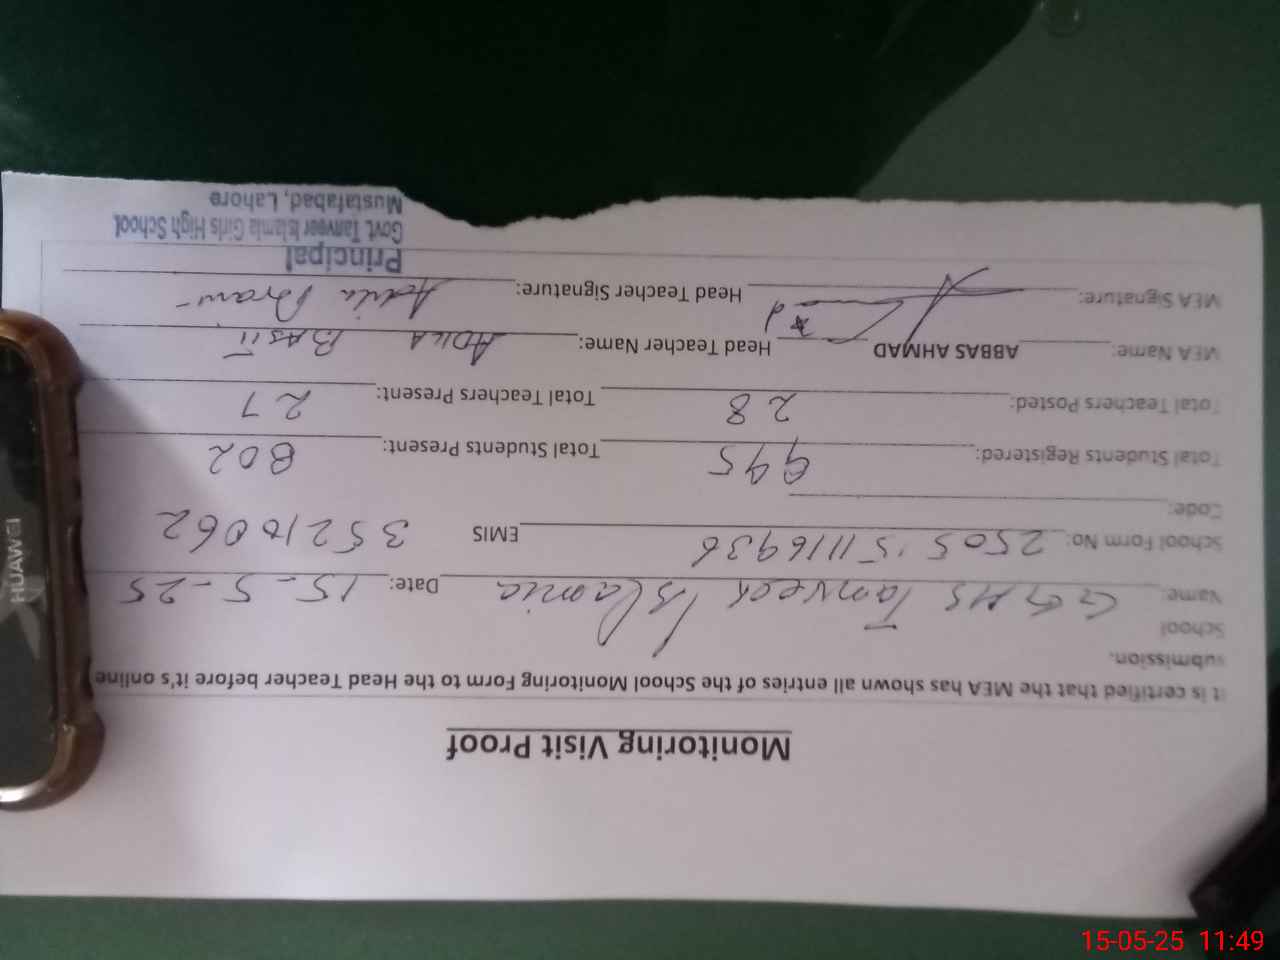 Monitoring Visit Proof
It is certified that the MEA has shown all entries of the School Monitoring Form to the Head Teacher before it's online
submission.
School
Name: GGHS Tanveer Islamia Date: 15-5-25
School Form No: 2505151116936 EMIS 35210062
Code:
Total Students Registered: 995 Total Students Present: 802
Total Teachers Posted: 28 Total Teachers Present: 27
MEA Name: ABBAS AHMAD Head Teacher Name: Adila BASit
MEA Signature: Head Teacher Signature: Adila
Principal
Govt. Tanveer Islamia Girls High School
Mustafabad, Lahore
HUAWEI
15-05-25 11:49